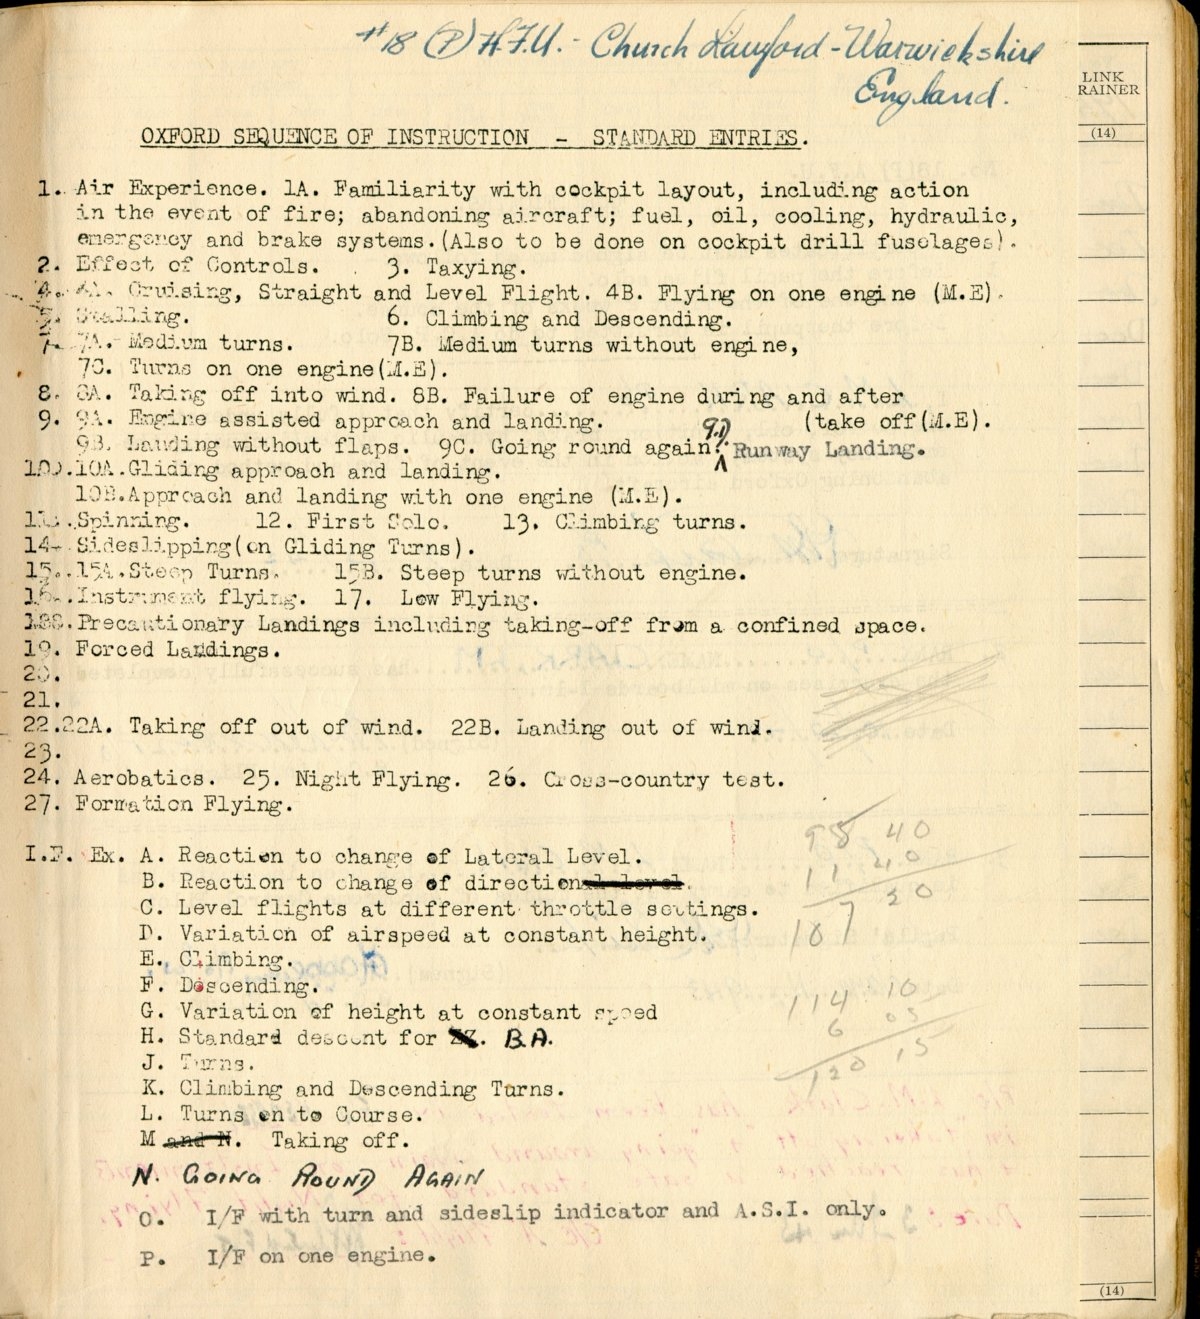 #18 (P) A.F.U. - Church Lawford - Warwickshire
England.
LINK
RAINER
(14)
OXFORD SEQUENCE OF INSTRUCTION - STANDARD ENTRIES.
1. Air Experience. 1A. Familiarity with cockpit layout, including action
in the event of fire; abandoning aircraft; fuel, oil, cooling, hydraulic,
emergency and brake systems.(Also to be done on cockpit drill fuselages).
2. Effect of Controls. 3. Taxying.
4. 4A. Cruising, Straight and Level Flight. 4B. Flying on one engine (M.E).
5. Stalling. 6. Climbing and Descending.
7. 7A. Medium turns. 7B. Medium turns without engine,
7C. Turns on one engine(M.E).
8. 8A. Taking off into wind. 8B. Failure of engine during and after
9. 9A. Engine assisted approach and landing. (take off(M.E).
9B. Landing without flaps. 9C. Going round again. 9D Runway Landing.
10.10A.Gliding approach and landing.
10B.Approach and landing with one engine (M.E).
11.Spinning. 12. First Solo. 13. Climbing turns.
14. Sideslipping(on Gliding Turns).
15.15A.Steep Turns. 15B. Steep turns without engine.
16.Instrument flying. 17. Low Flying.
18.Precautionary Landings including taking-off from a confined space.
19. Forced Landings.
20.
21.
22.22A. Taking off out of wind. 22B. Landing out of wind.
23.
24. Aerobatics. 25. Night Flying. 26. Cross-country test.
27. Formation Flying.
98 40
11 40
107 20
I.F. Ex. A. Reaction to change of Lateral Level.
B. Reaction to change of directional level.
C. Level flights at different throttle settings.
D. Variation of airspeed at constant height.
E. Climbing.
F. Descending.
G. Variation of height at constant speed
H. Standard descent for B.A.
J. Turns.
K. Climbing and Descending Turns.
L. Turns on to Course.
M and N. Taking off.
N. GOING ROUND AGAIN
O. I/F with turn and sideslip indicator and A.S.I. only.
P. I/F on one engine.
114 10
6 05
120 15
(14)